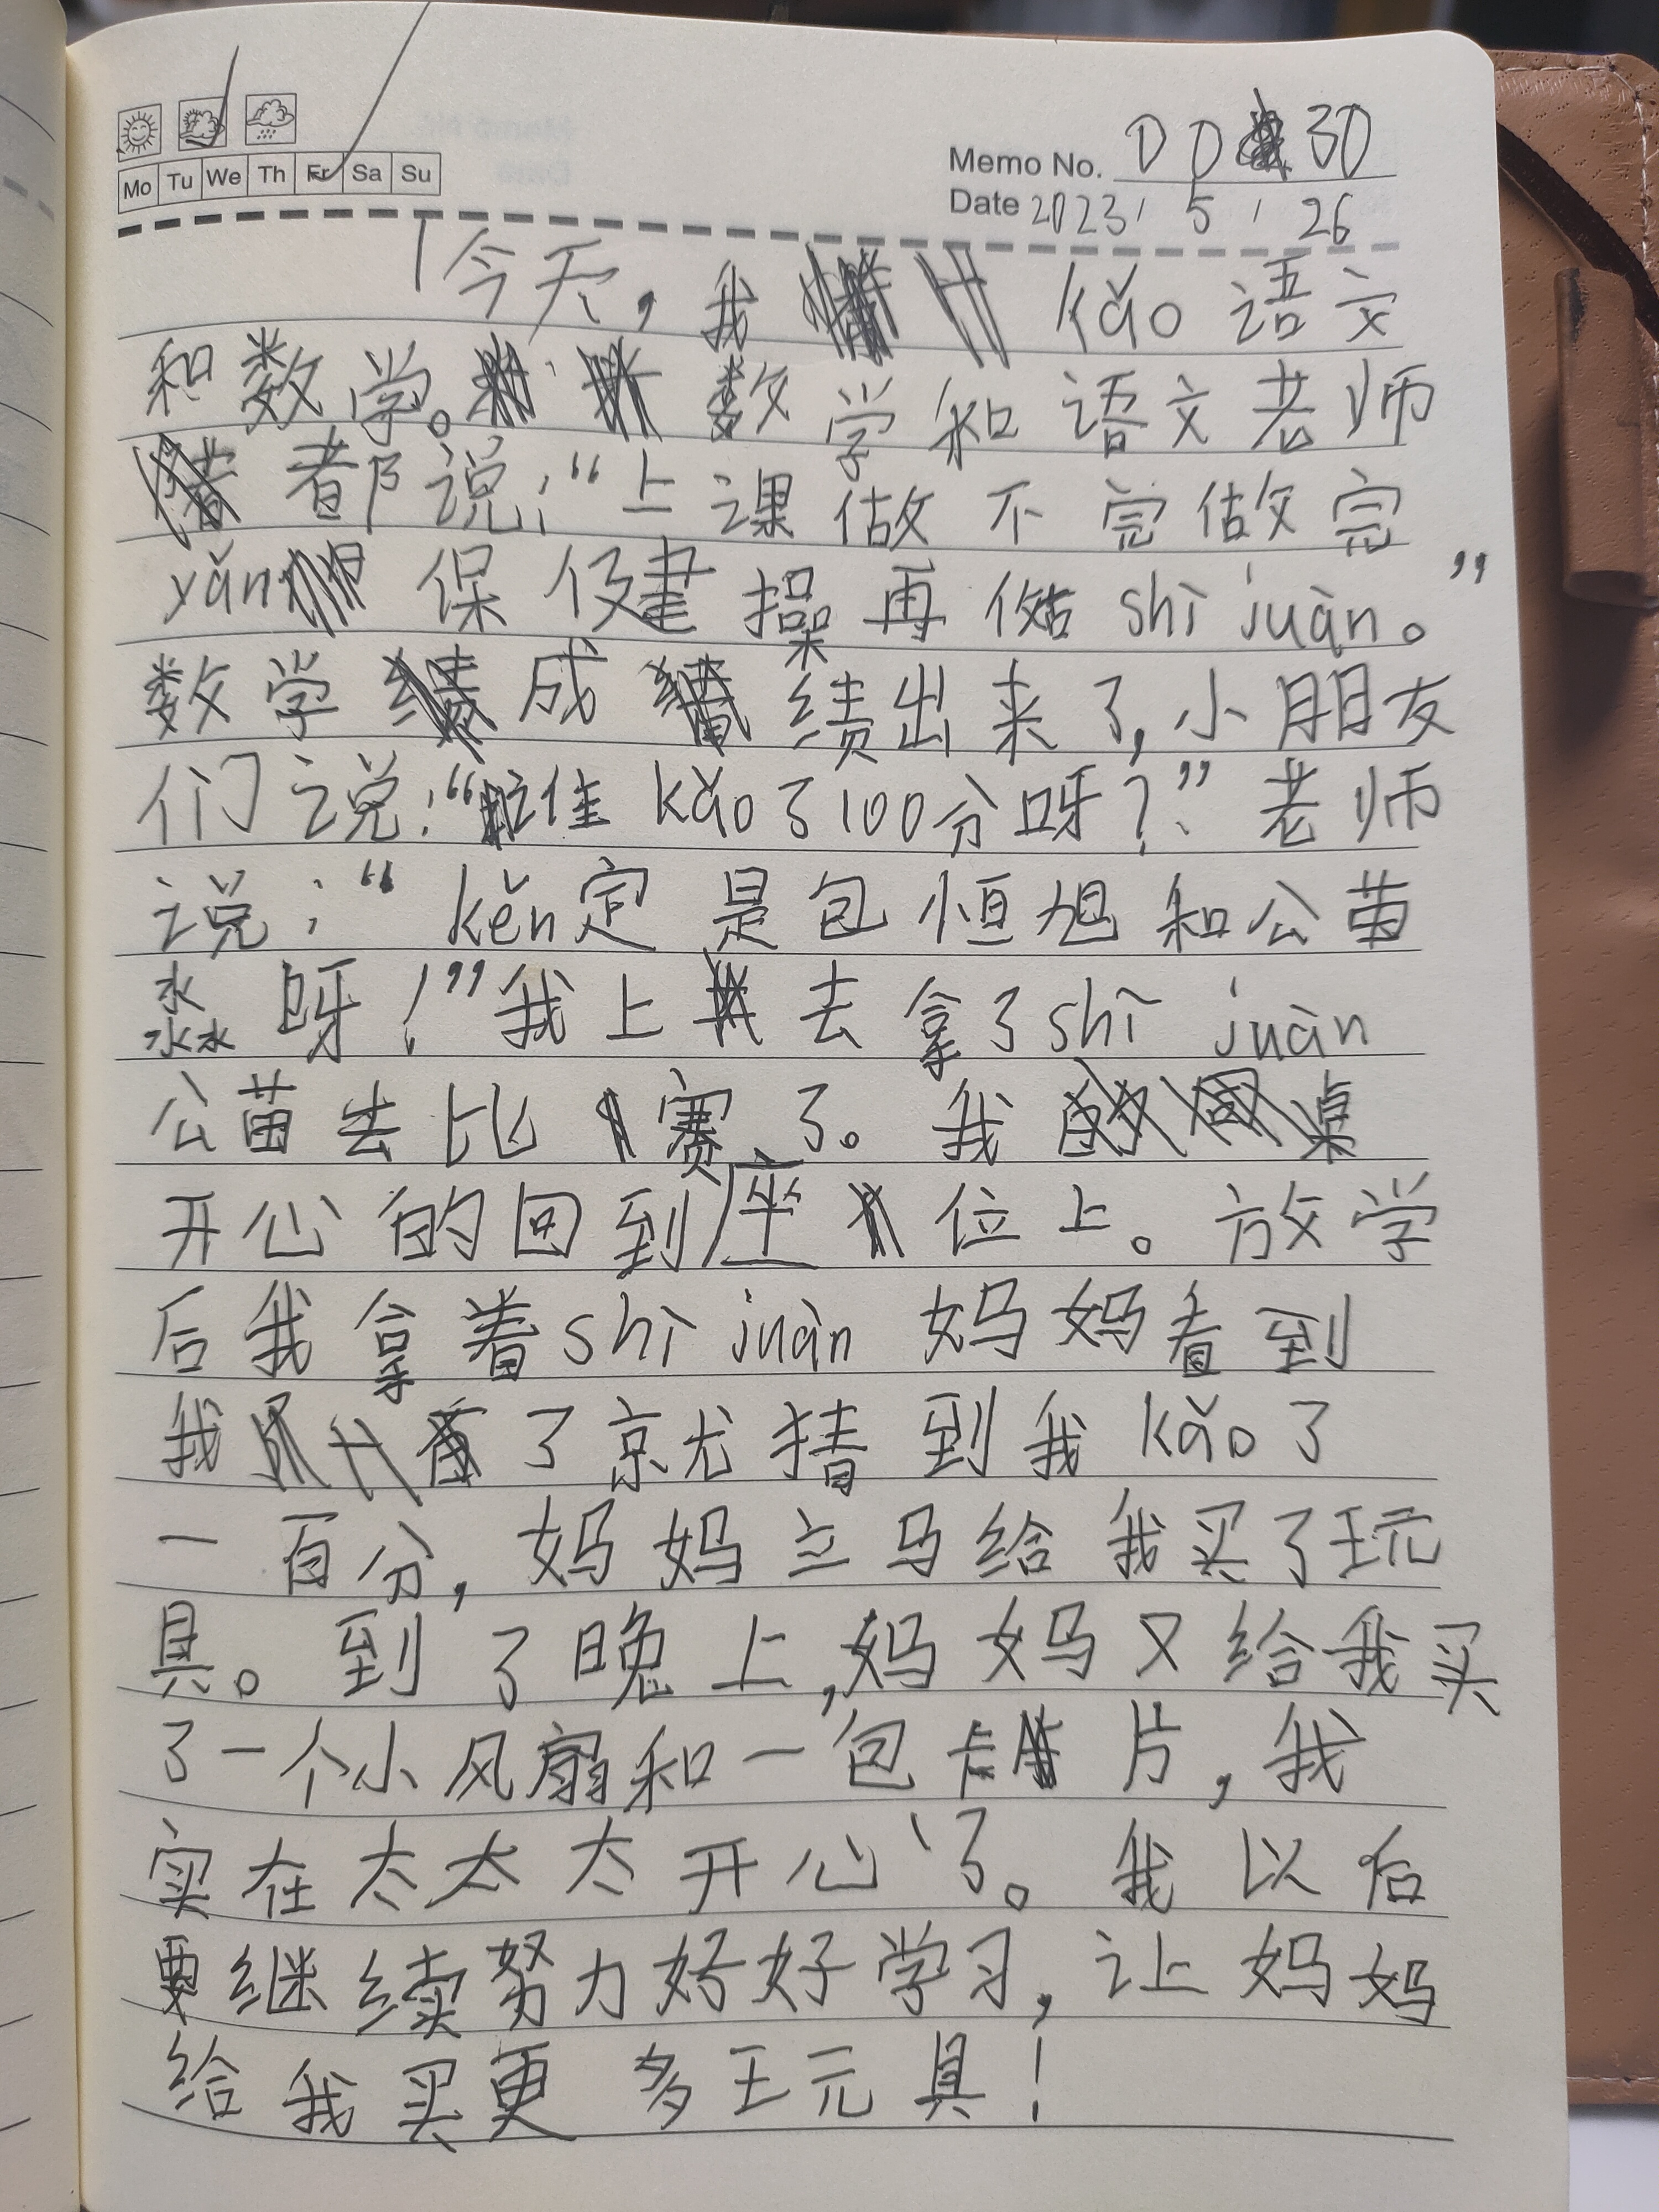 Mo Tu We Th Fr Sa Su
Memo No. 0030
Date 2023.5.26
今天，我 kǎo 语文
和数学。数学和语文老师
都说：“上课做不完做完
yǎn保健操再做 shì juàn。”
数学成绩出来了，小朋友
们说：“谁 kǎo了100分呀？”老师
说：“kěn定是包恒旭和公苗
淼呀！”我上去拿了shì juàn
公苗去比赛了。我桌
开心的回到座位上。放学
后我拿着shì juàn 妈妈看到
我了就猜到我 kǎo了
一百分，妈妈立马给我买了玩
具。到了晚上，妈妈又给我买
了一个小风扇和一包卡片，我
实在太太太开心了。我以后
要继续努力好好学习，让妈妈
给我买更多玩具！